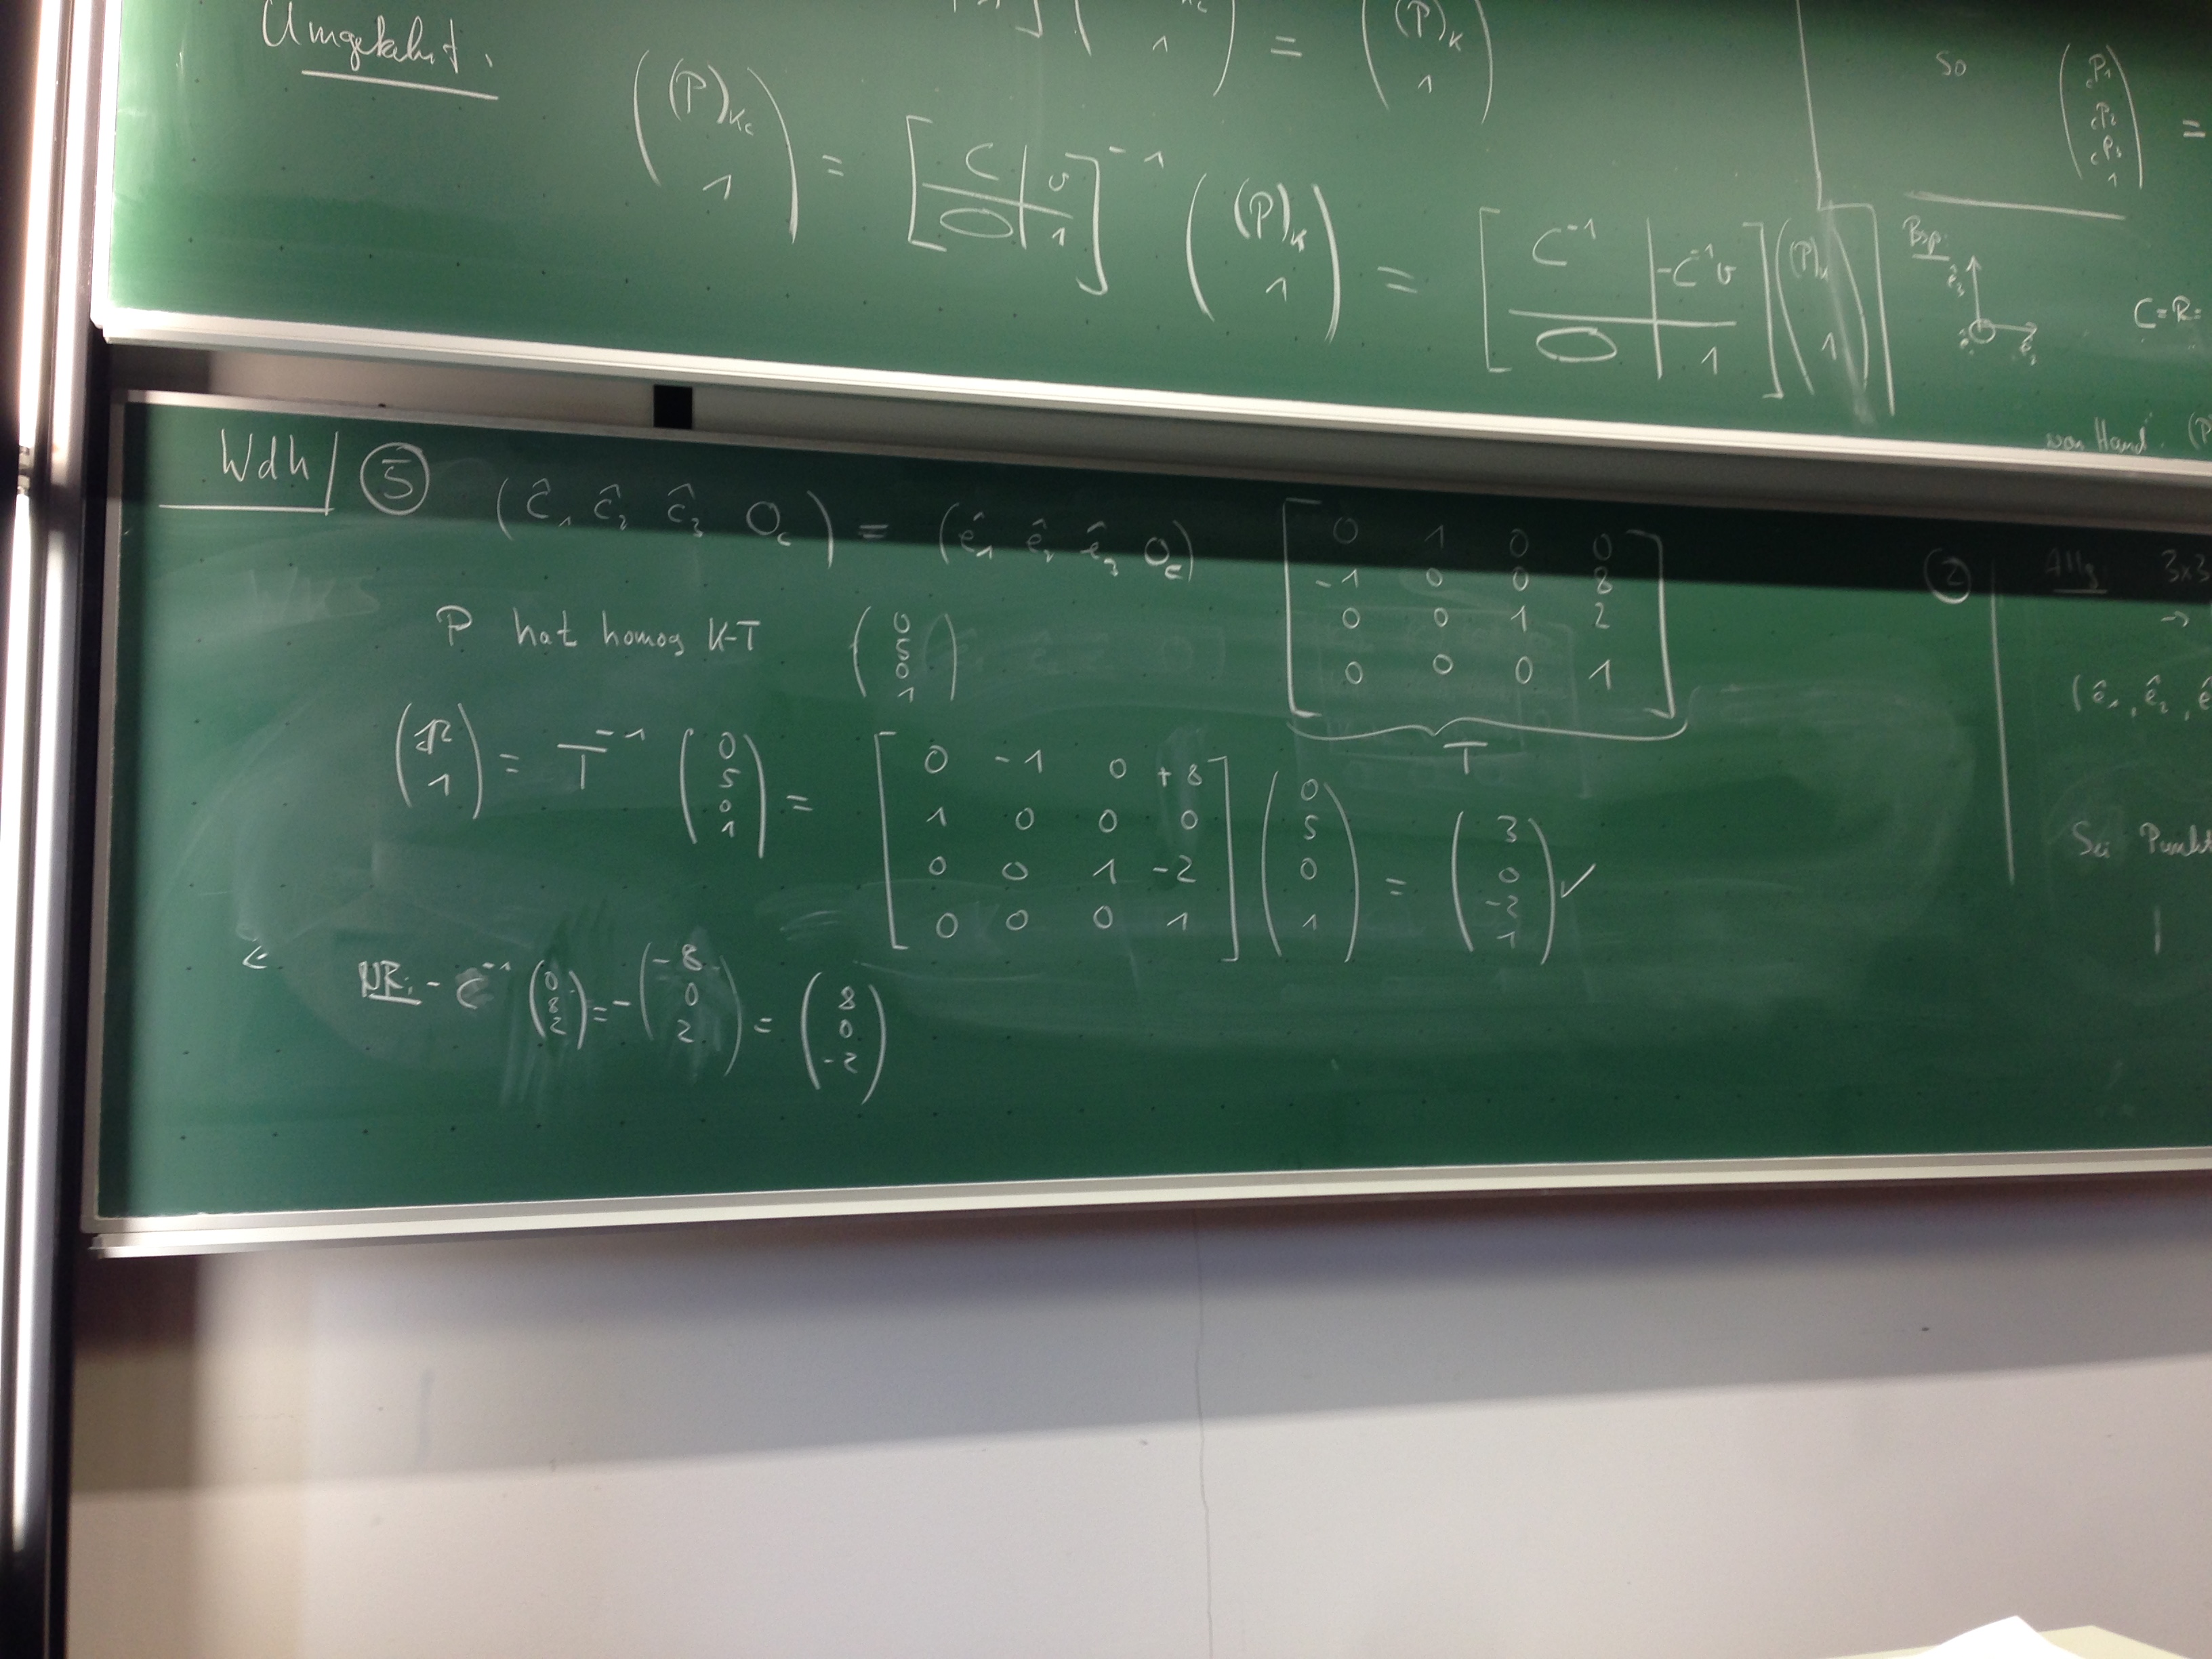 Umgekehrt.
( (P)_K 1 )
( (P)_Kc 1 ) = [ C | v ; 0 | 1 ]^-1 ( (P)_K 1 ) = [ C^-1 | -C^-1 v ; 0 | 1 ] ( (P)_K 1 )
So ( cP1 cP2 cP3 1 ) =
Bsp:
C=R=
von Hand.
Wdh / ⑤ (ĉ1 ĉ2 ĉ3 O_c) = (ê1 ê2 ê3 O_e)
0 1 0 0
-1 0 0 8
0 0 1 2
0 0 0 1
T
P hat homog K-T ( 0 5 0 1 )
= T^-1 ( 0 5 0 1 ) =
0 -1 0 +8
1 0 0 0
0 0 1 -2
0 0 0 1
( 0 5 0 1 ) = ( 3 0 -2 1 ) ✓
NR: - C^-1 ( 0 8 2 ) = - ( -8 0 2 ) = ( 8 0 -2 )
② Allg. 3x3
→
(ê1, ê2, ê
Sei Punkt